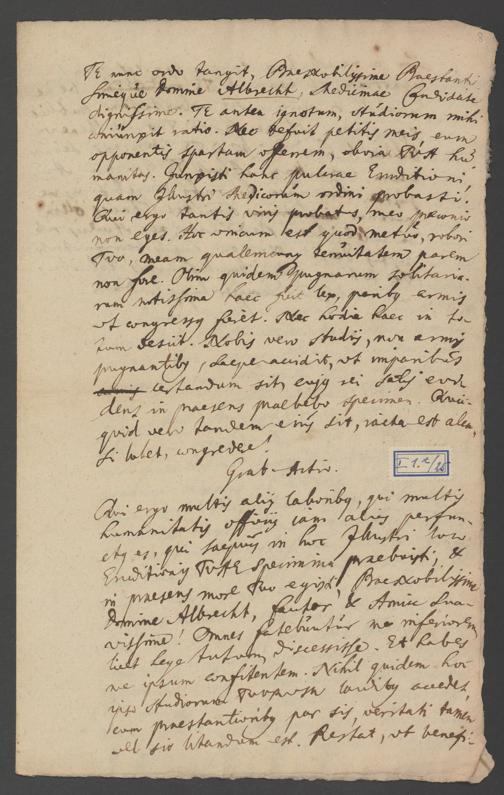 Te nunc ordo tangit, Praenobilissime Praestanti
simeque Domine Albrecht, Medicinae Candidate
dignissime. Te antea ignotum, studiorum mihi
coniunxit ratio. Nec defuit petitis meis, cum
opponentis spartam offerrem, obvia TuA hu
manitas. Junxisti hanc pulcrae Eruditioni,
quam Illustri Medicorum ordini probasti.
Qui ergo tantis viris probatus, meo praeconio
non eges. Hoc unicum est quod metuo, robori
Tuo, meam qualemcunq tenuitatem parem
non fore. Olim quidem pugnarum solitaria-
rum notissima haec fuit lex, paribq armis
ut congressq fieret. Nec hodie haec in to-
tum desiit. Nobis vero studiis, non armis
pugnantibq, saepe accidit, ut imparibus
certandum sit, cujq rei satis evi-
dens in praesens praebebo specimen. Quic-
quid vero tandem ejus sit, iacta est alea,
si lubet, congredere!
Grat. Actio.
I 1.2/26
Qui ergo multis aliis laboribq, qui multis
humanitatis officiis iam alias perfun-
ctq es, qui saepius in hoc Illustri loco
Eruditionis TuAE specimina praebuisti, &
in praesens more Tuo egisti, Praenobilissime
Domine Albrecht, fautor & Amice sua-
vissime! Omnes fatebuntur me inferiorem
licet lege tutum, discessisse. Et habes
me ipsum confitentem. Nihil quidem hoc
ipso studiorum Tuorum laudibq accedet,
cum praestantioribq par sis, veritati tamen
vel sic litandum est. Restat, ut benefi-